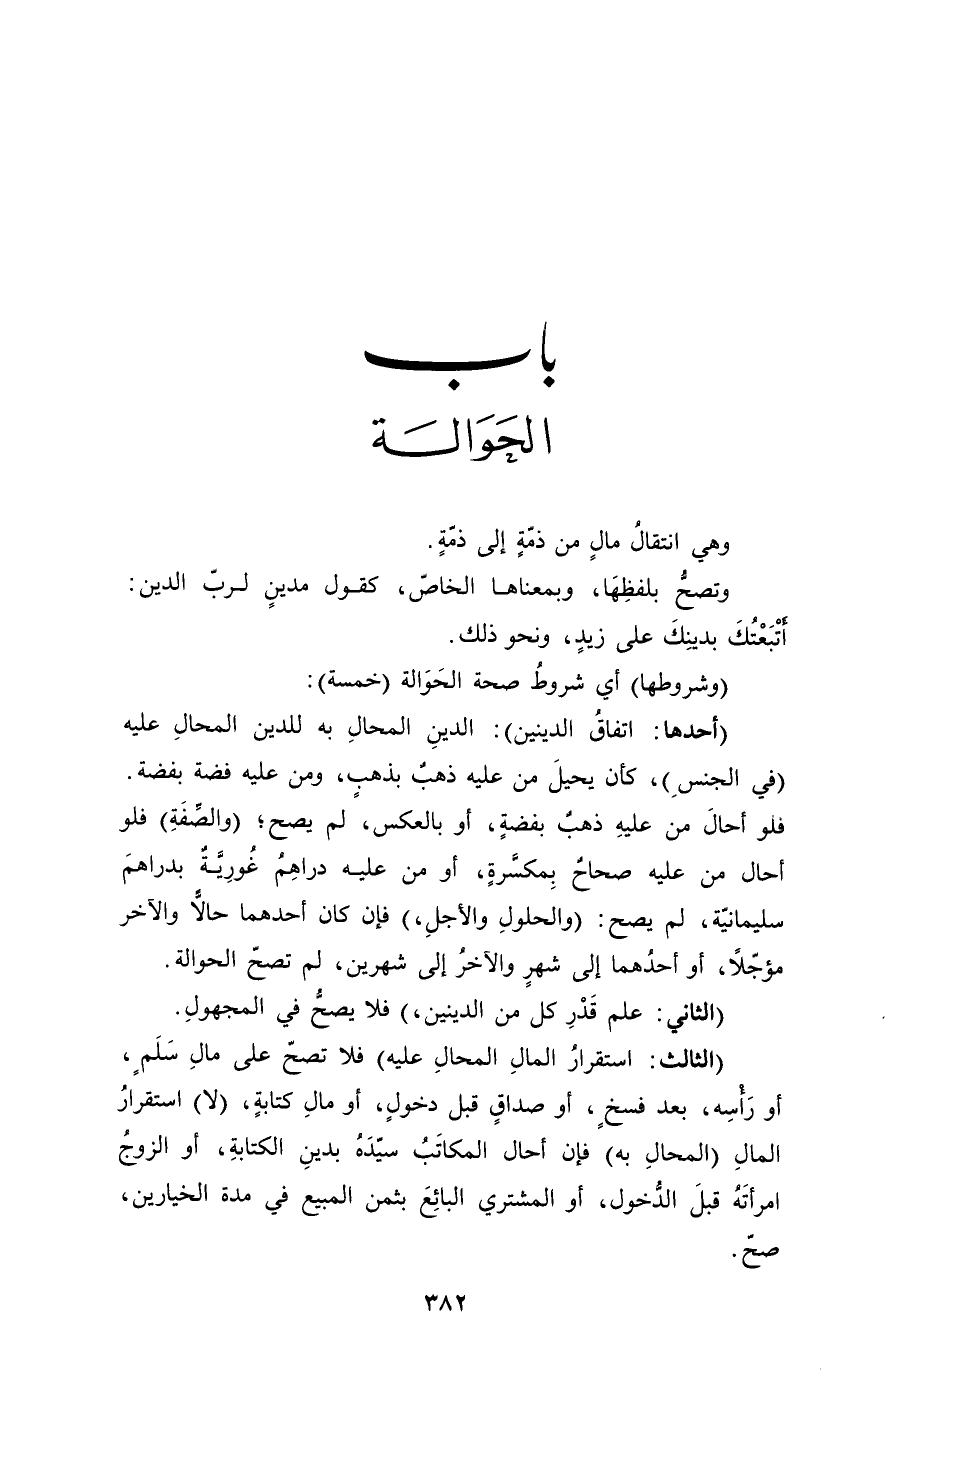 باب
الحَوَالـــة
وهي انتقالُ مالٍ من ذمّةٍ إلى ذمّةٍ.
وتصحُّ بلفظِهَا، وبمعناهـا الخاصّ، كقـول مدينٍ لـربّ الدين:
أَتْبَعْتُكَ بدينِكَ على زيدٍ، ونحو ذلك.
(وشروطها) أي شروطُ صحة الحَوَالة (خمسة):
(أحدها: اتفاقُ الدينين): الدينِ المحالِ به للدين المحالِ عليه
(في الجنسِ)، كأن يحيلَ من عليه ذهبٌ بذهبٍ، ومن عليه فضة بفضة.
فلو أحالَ من عليهِ ذهبٌ بفضةٍ، أو بالعكس، لم يصح؛ (والصِّفَةِ) فلو
أحال من عليه صحاحٌ بِمكسَّرةٍ، أو من عليـه دراهِمُ غُورِيَّـةٌ بدراهمَ
سليمانيّة، لم يصح: (والحلولِ والأجلِ،) فإن كان أحدهما حالاًّ والآخر
مؤجّلًا، أو أحدُهما إلى شهرٍ والآخرُ إلى شهرين، لم تصحّ الحوالة.
(الثاني: علم قَدْرِ كل من الدينين،) فلا يصحُّ في المجهولِ.
(الثالث: استقرارُ المالِ المحالِ عليه) فلا تصحّ على مالِ سَلَمٍ،
أو رَأْسِه، بعد فسخٍ، أو صداقٍ قبل دخولٍ، أو مالِ كتابةٍ، (لا) استقرارُ
المالِ (المحالِ به) فإن أحال المكاتَبُ سيّدَهُ بدينِ الكتابةِ، أو الزوجُ
امرأتَهُ قبلَ الدُّخول، أو المشتري البائِعَ بثمن المبيع في مدة الخيارين،
صحّ.
٣٨٢